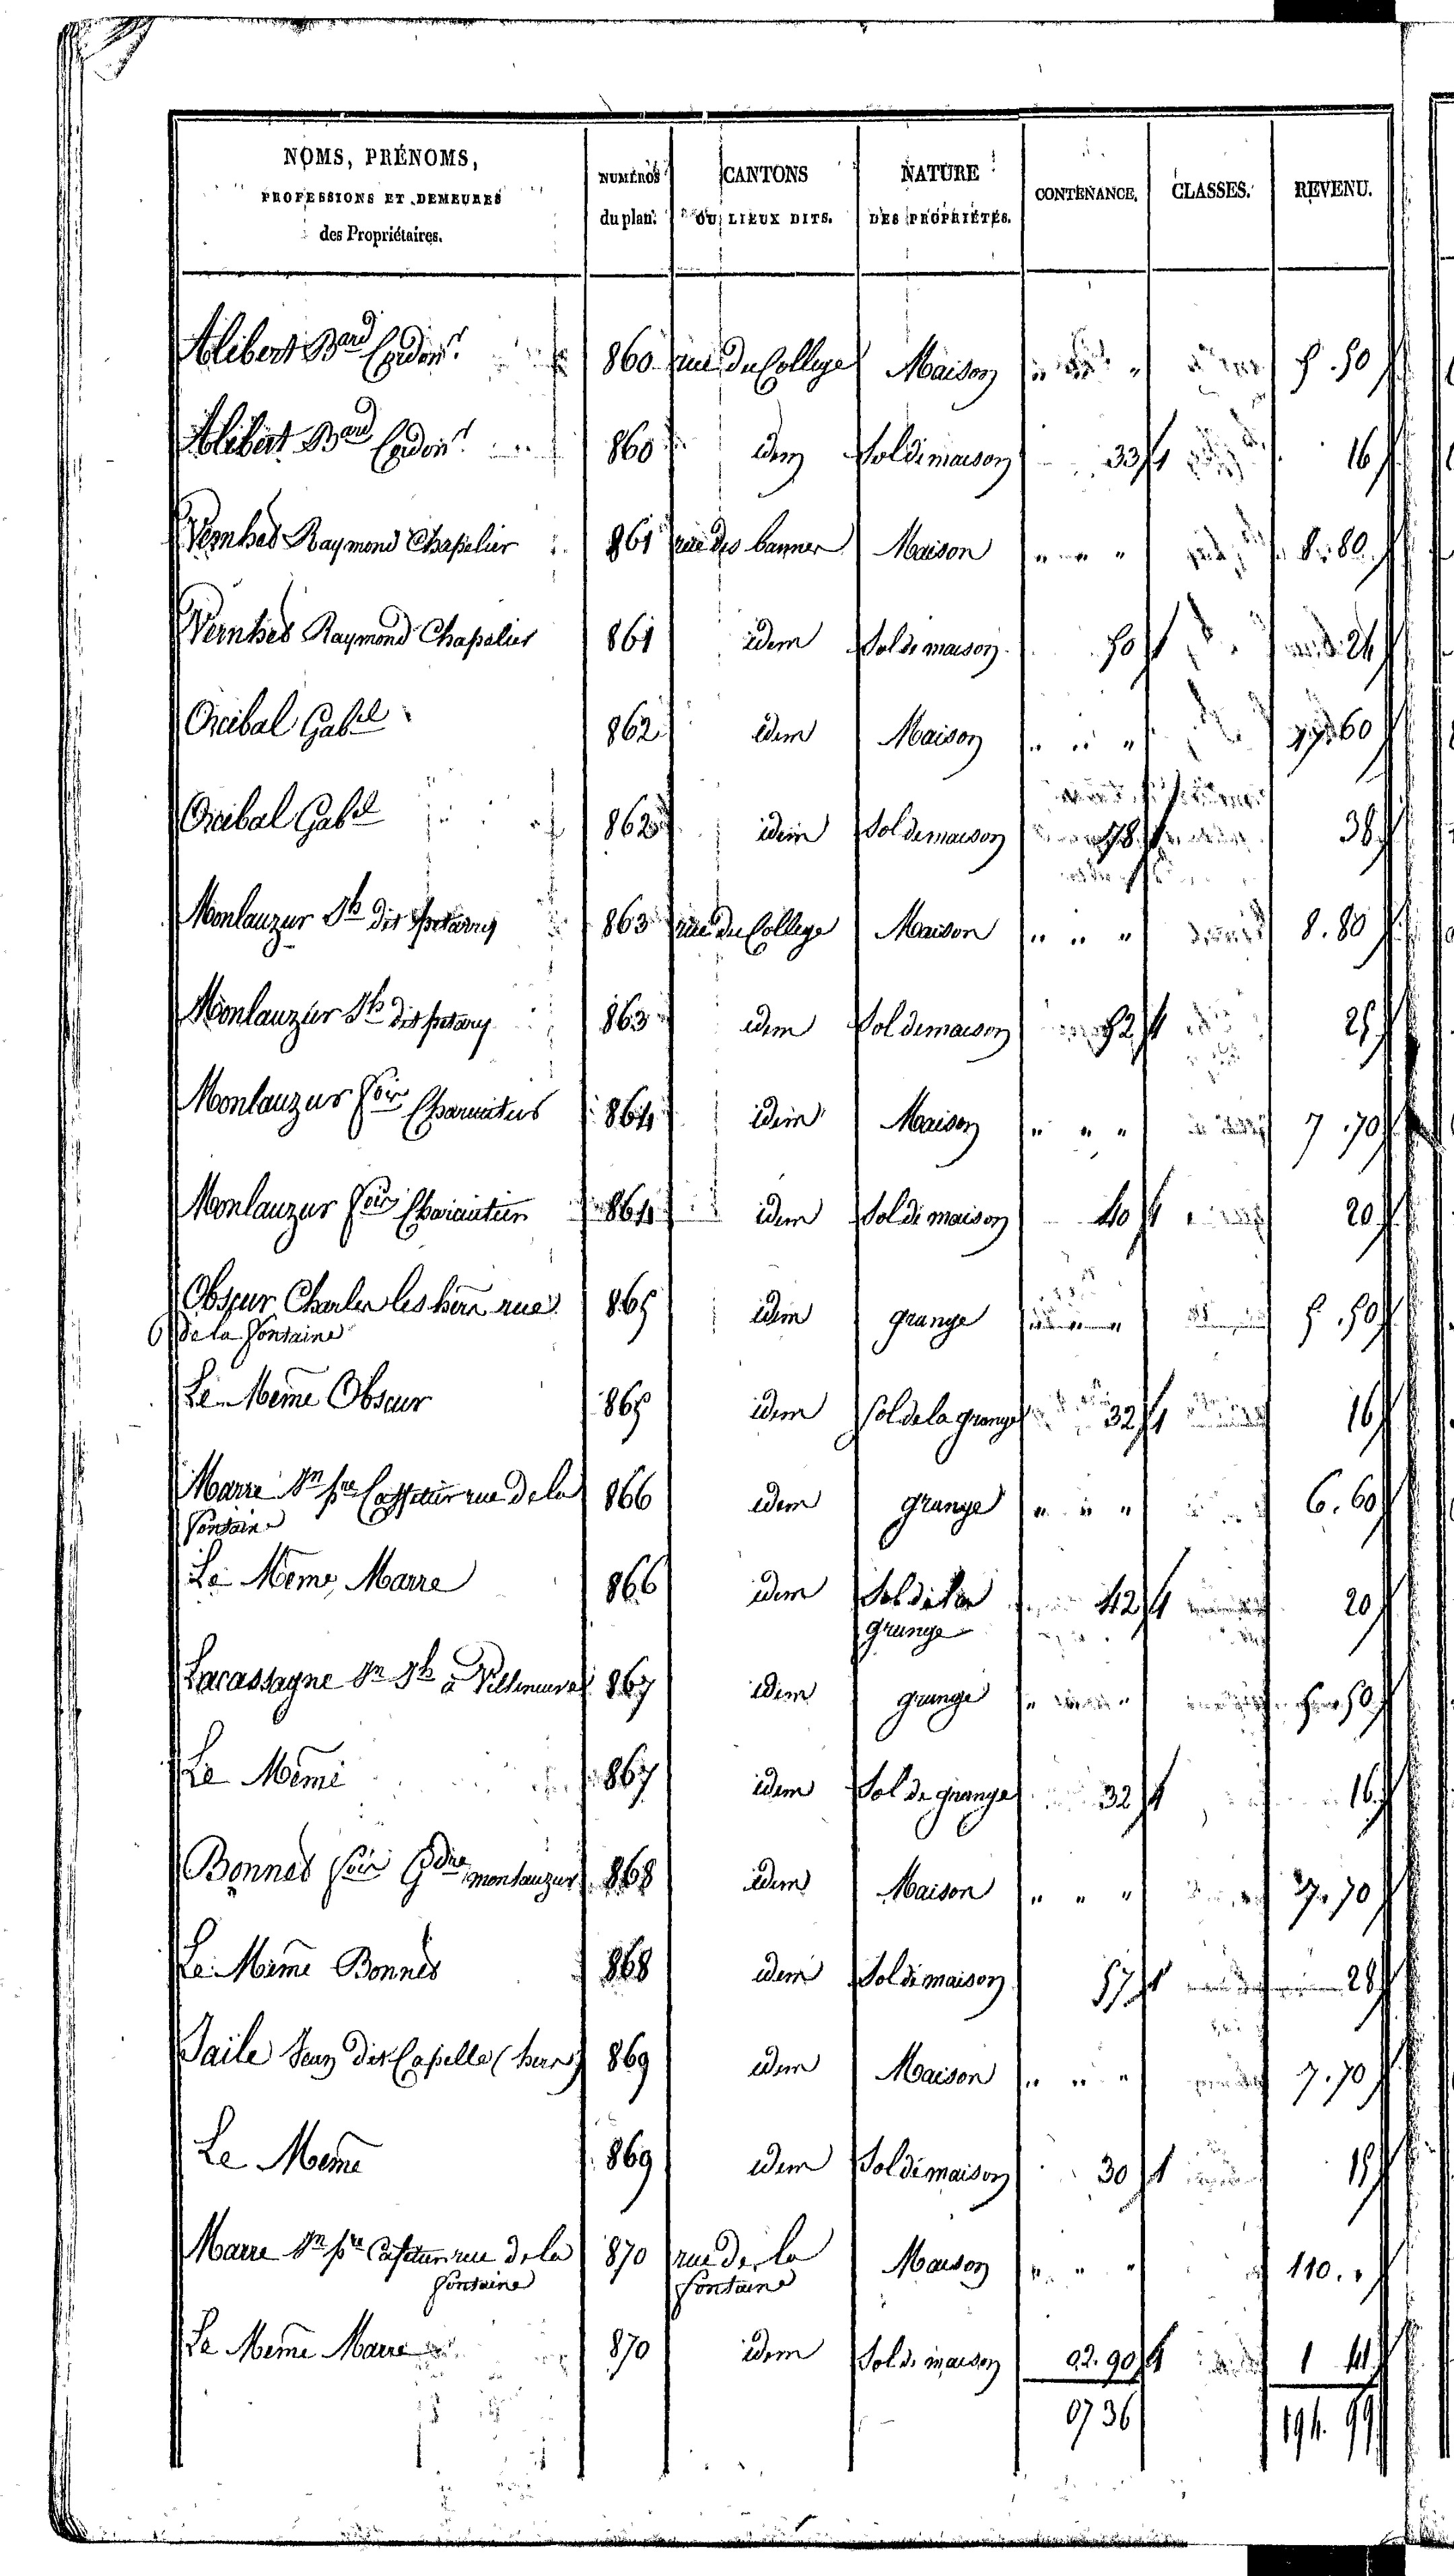 NOMS, PRÉNOMS, PROFESSIONS ET DEMEURES des Propriétaires. NUMÉROS du plan. CANTONS OU LIEUX DITS. NATURE DES PROPRIÉTÉS. CONTENANCE. CLASSES. REVENU.
Alibert Bard Cordonr 860 rue du College Maison " " 5.50
Alibert Bard Cordonr 860 idem Sol de maison 33 1 16
Vernhes Raymond Chapelier 861 rue des Maison " " " 8.80
Vernhes Raymond Chapelier 861 idem Sol de maison 50 1 24
Orcibal Gabel 862 idem Maison " " " 17.60
Orcibal Gabel 862 idem Sol de maison 78 1 38
Monlauzur Jh dit 863 rue du College Maison " " " 8.80
Monlauzur Jh dit 863 idem Sol de maison 52 1 25
Monlauzur 864 idem Maison " " " 7.70
Monlauzur 864 idem Sol de maison 40 1 20
Obscur Charles les hérs rue 865 idem grange " " " 5.50
de la fontaine
Le Meme Obscur 865 idem Sol de la grange 32 1 16
Marre Jn pre rue de la 866 idem grange " " " 6.60
fontaine
Le Meme Marre 866 idem Sol de la 42 1 20
grange
Lacassagne Jn Jh à Villeneuve 867 idem grange " " 5.50
Le Meme 867 idem Sol de grange 32 1 16
Bonnes Gdre monlauzur 868 idem Maison " " " 7.70
Le Meme Bonnes 868 idem Sol de maison 57 1 28
Jaile Jean dit Capelle (hers) 869 idem Maison " " " 7.70
Le Meme 869 idem Sol de maison 30 1 15
Marre Jn pre rue de la 870 rue de la Maison " " " 110."
fontaine fontaine
Le Meme Marre 870 idem Sol de maison 02.90 1 1 41
07 36 194.99